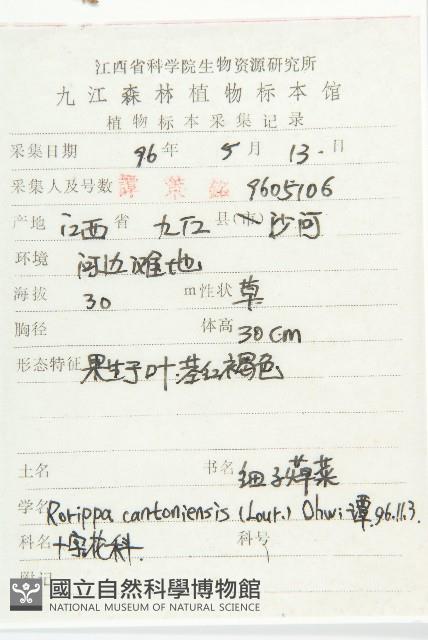 江西省科学院生物资源研究所
九江森林植物标本馆
植物标本采集记录
采集日期 96年 5月 13.日
采集人及号数 譚策銘 9605106
产地 江西省 九江县(市) 沙河
环境 河边滩地
海拔 30 m性状 草
胸径 体高 30cm
形态特征 果生于叶.茎红褐色
土名 书名 细子蔊菜
学名 Rorippa cantoniensis (Lour.) Ohwi 谭.96.11.3.
科名 十字花科. 科号
附记
國立自然科學博物館
NATIONAL MUSEUM OF NATURAL SCIENCE